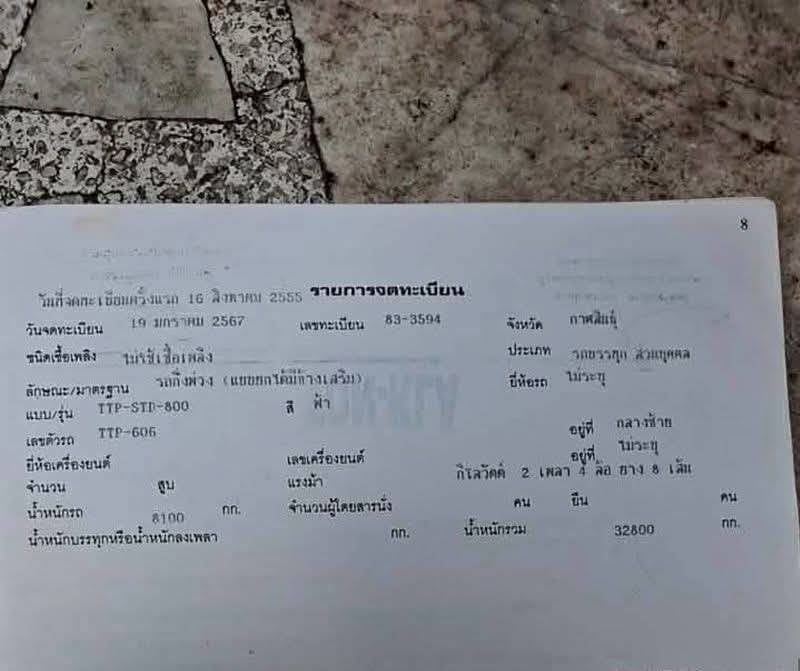 8
วันที่จดทะเบียนครั้งแรก 16 สิงหาคม 2555 รายการจดทะเบียน
วันจดทะเบียน 19 มกราคม 2567 เลขทะเบียน 83-3594 จังหวัด กาฬสินธุ์
ชนิดเชื้อเพลิง ไม่ใช้เชื้อเพลิง ประเภท รถบรรทุก ส่วนบุคคล
ลักษณะ/มาตรฐาน รถกึ่งพ่วง (แบบยกได้มีข้างเสริม) ยี่ห้อรถ ไม่ระบุ
แบบ/รุ่น TTP-STD-800 สี ฟ้า
เลขตัวรถ TTP-606 อยู่ที่ กลางซ้าย
ยี่ห้อเครื่องยนต์ เลขเครื่องยนต์ อยู่ที่ ไม่ระบุ
จำนวน สูบ แรงม้า กิโลวัตต์ 2 เพลา 4 ล้อ ยาง 8 เส้น
น้ำหนักรถ 8100 กก. จำนวนผู้โดยสารนั่ง คน ยืน คน
น้ำหนักบรรทุกหรือน้ำหนักลงเพลา กก. น้ำหนักรวม 32800 กก.